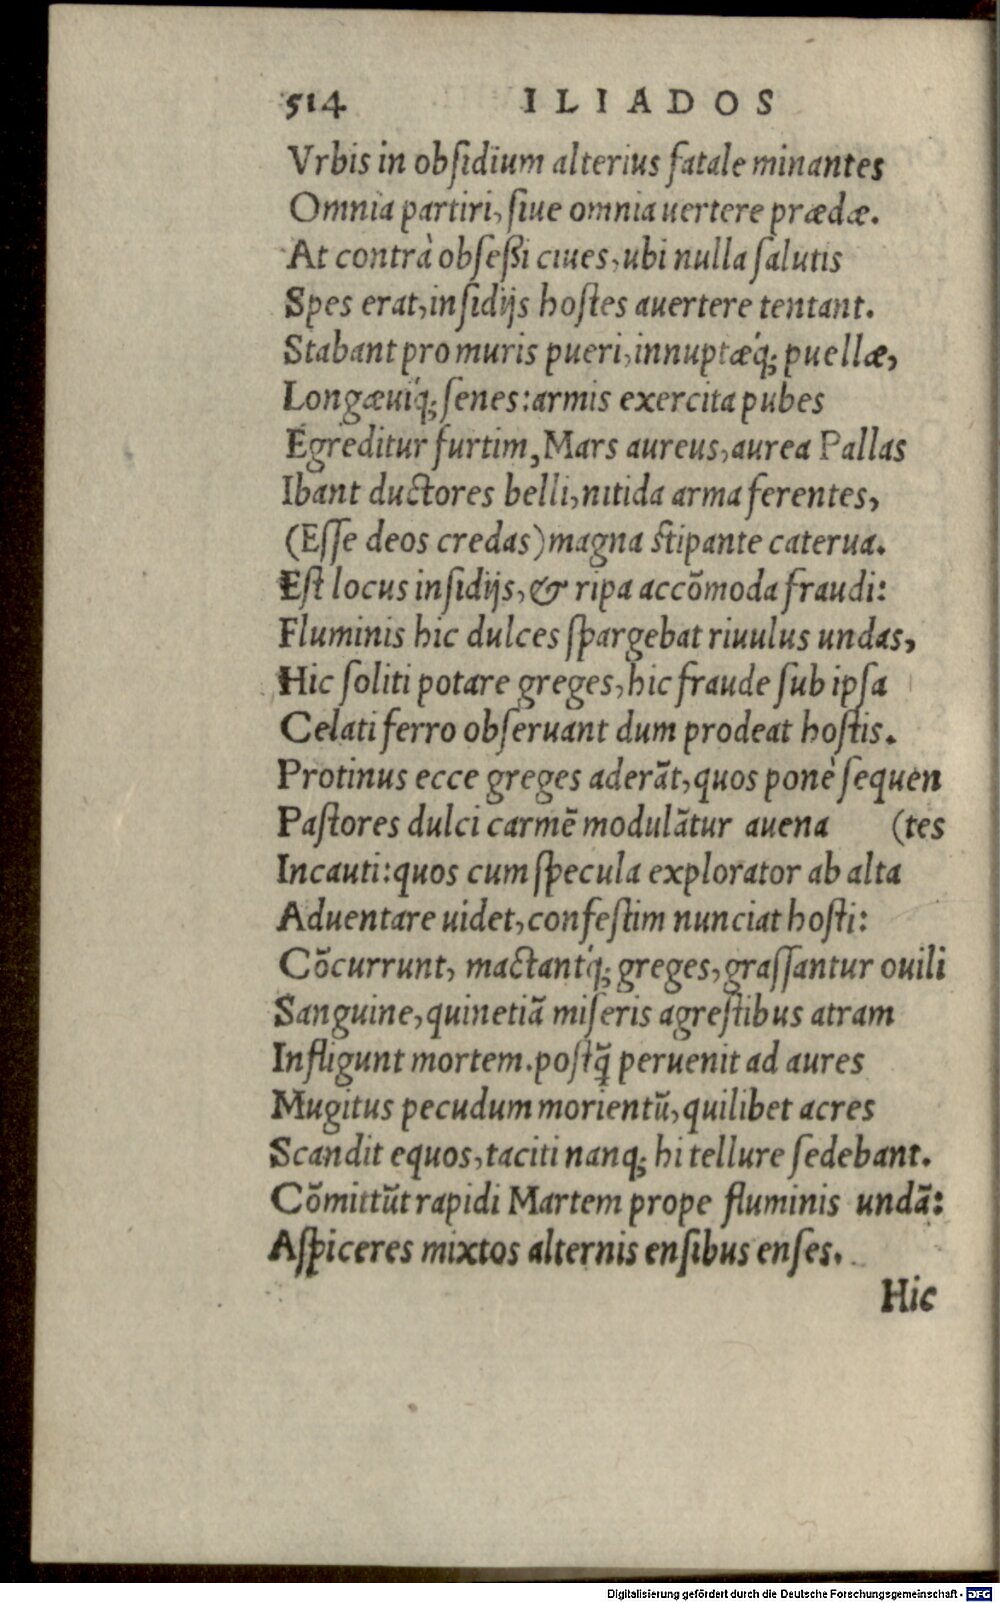 514 ILIADOS
Vrbis in obſidium alterius fatale minantes
Omnia partiri, ſiue omnia uertere prædæ.
At contrà obſeßi ciues, ubi nulla ſalutis
Spes erat, inſidijs hoſtes auertere tentant.
Stabant pro muris pueri, innuptæq́; puellæ,
Longæuiq́; ſenes: armis exercita pubes
Egreditur furtim, Mars aureus, aurea Pallas
Ibant ductores belli, nitida arma ferentes,
(Eſſe deos credas) magna ſtipante caterua.
Eſt locus inſidijs, & ripa accõmoda fraudi:
Fluminis hic dulces ſpargebat riuulus undas,
Hic ſoliti potare greges, hic fraude ſub ipſa
Celati ferro obſeruant dum prodeat hoſtis.
Protinus ecce greges aderãt, quos ponè ſequen
Paſtores dulci carmẽ modulãtur auena (tes
Incauti: quos cum ſpecula explorator ab alta
Aduentare uidet, confeſtim nunciat hoſti:
Cõcurrunt, mactantq́; greges, graſſantur ouili
Sanguine, quinetiã miſeris agreſtibus atram
Infligunt mortem. poſtq̃ peruenit ad aures
Mugitus pecudum morientũ, quilibet acres
Scandit equos, taciti nanq; hi tellure ſedebant.
Cõmittũt rapidi Martem prope fluminis undã:
Aſpiceres mixtos alternis enſibus enſes.
Hic
Digitalisierung gefördert durch die Deutsche Forschungsgemeinschaft - DFG